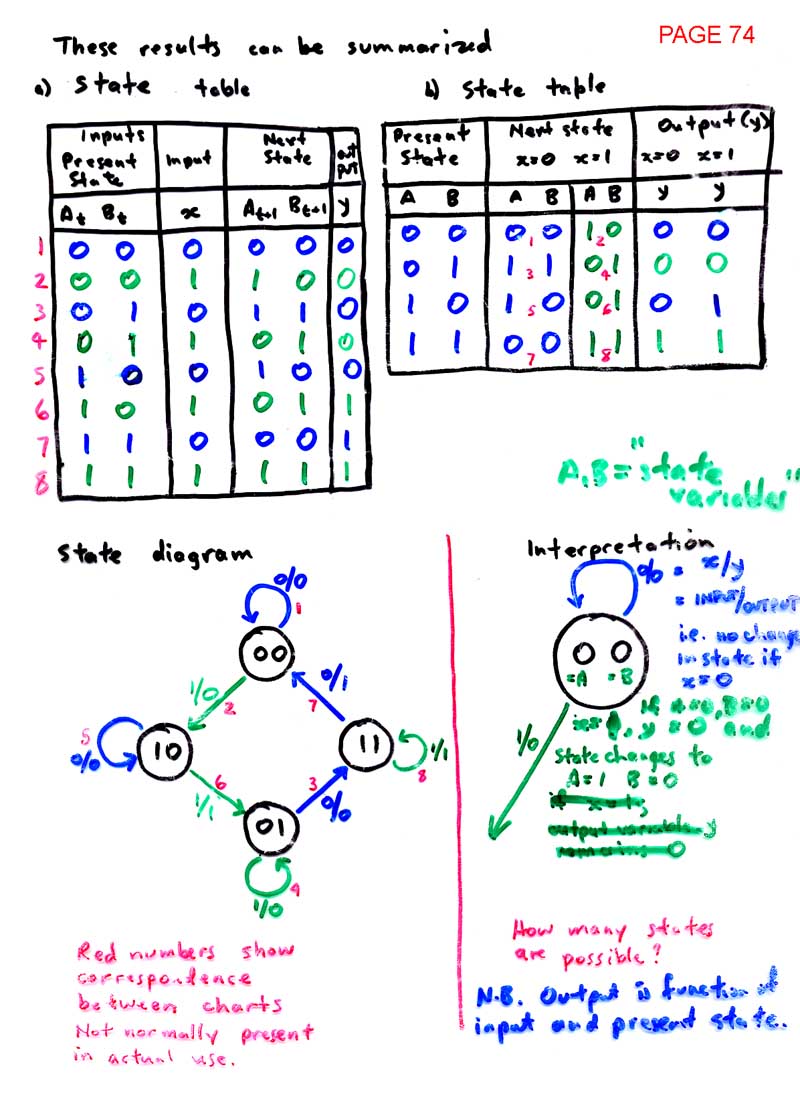 PAGE 74
These results can be summarized
a) State table
b) State table
Inputs
Present State
Input
Next State
output
At Bt
x
At+1 Bt+1
y
1 0 0 0 0 0 0
2 0 0 1 1 0 0
3 0 1 0 1 1 0
4 0 1 1 0 1 0
5 1 0 0 1 0 0
6 1 0 1 0 1 1
7 1 1 0 0 0 1
8 1 1 1 1 1 1
Present State
Next state
x=0 x=1
Output (y)
x=0 x=1
A B A B A B y y
0 0 0 1 0 1 2 0 0 0
0 1 1 3 1 0 4 1 0 0
1 0 1 5 0 0 6 1 0 1
1 1 0 7 0 1 8 1 1 1
A,B = "state
variables"
State diagram
0/0
1
00
1/0
2
0/1
7
5
0/0
10
11
1/1
8
6
1/1
3
0/0
01
1/0
4
Red numbers show
correspondence
between charts
Not normally present
in actual use.
Interpretation
0/0 = x/y
= INPUT/OUTPUT
i.e. no change
in state if
x=0
0 0
=A =B
1/0
If A=0, B=0
x=1, y=0 and
state changes to
A=1 B=0
if x=1,
output variable y
remains 0
How many states
are possible?
N.B. Output is function of
input and present state.